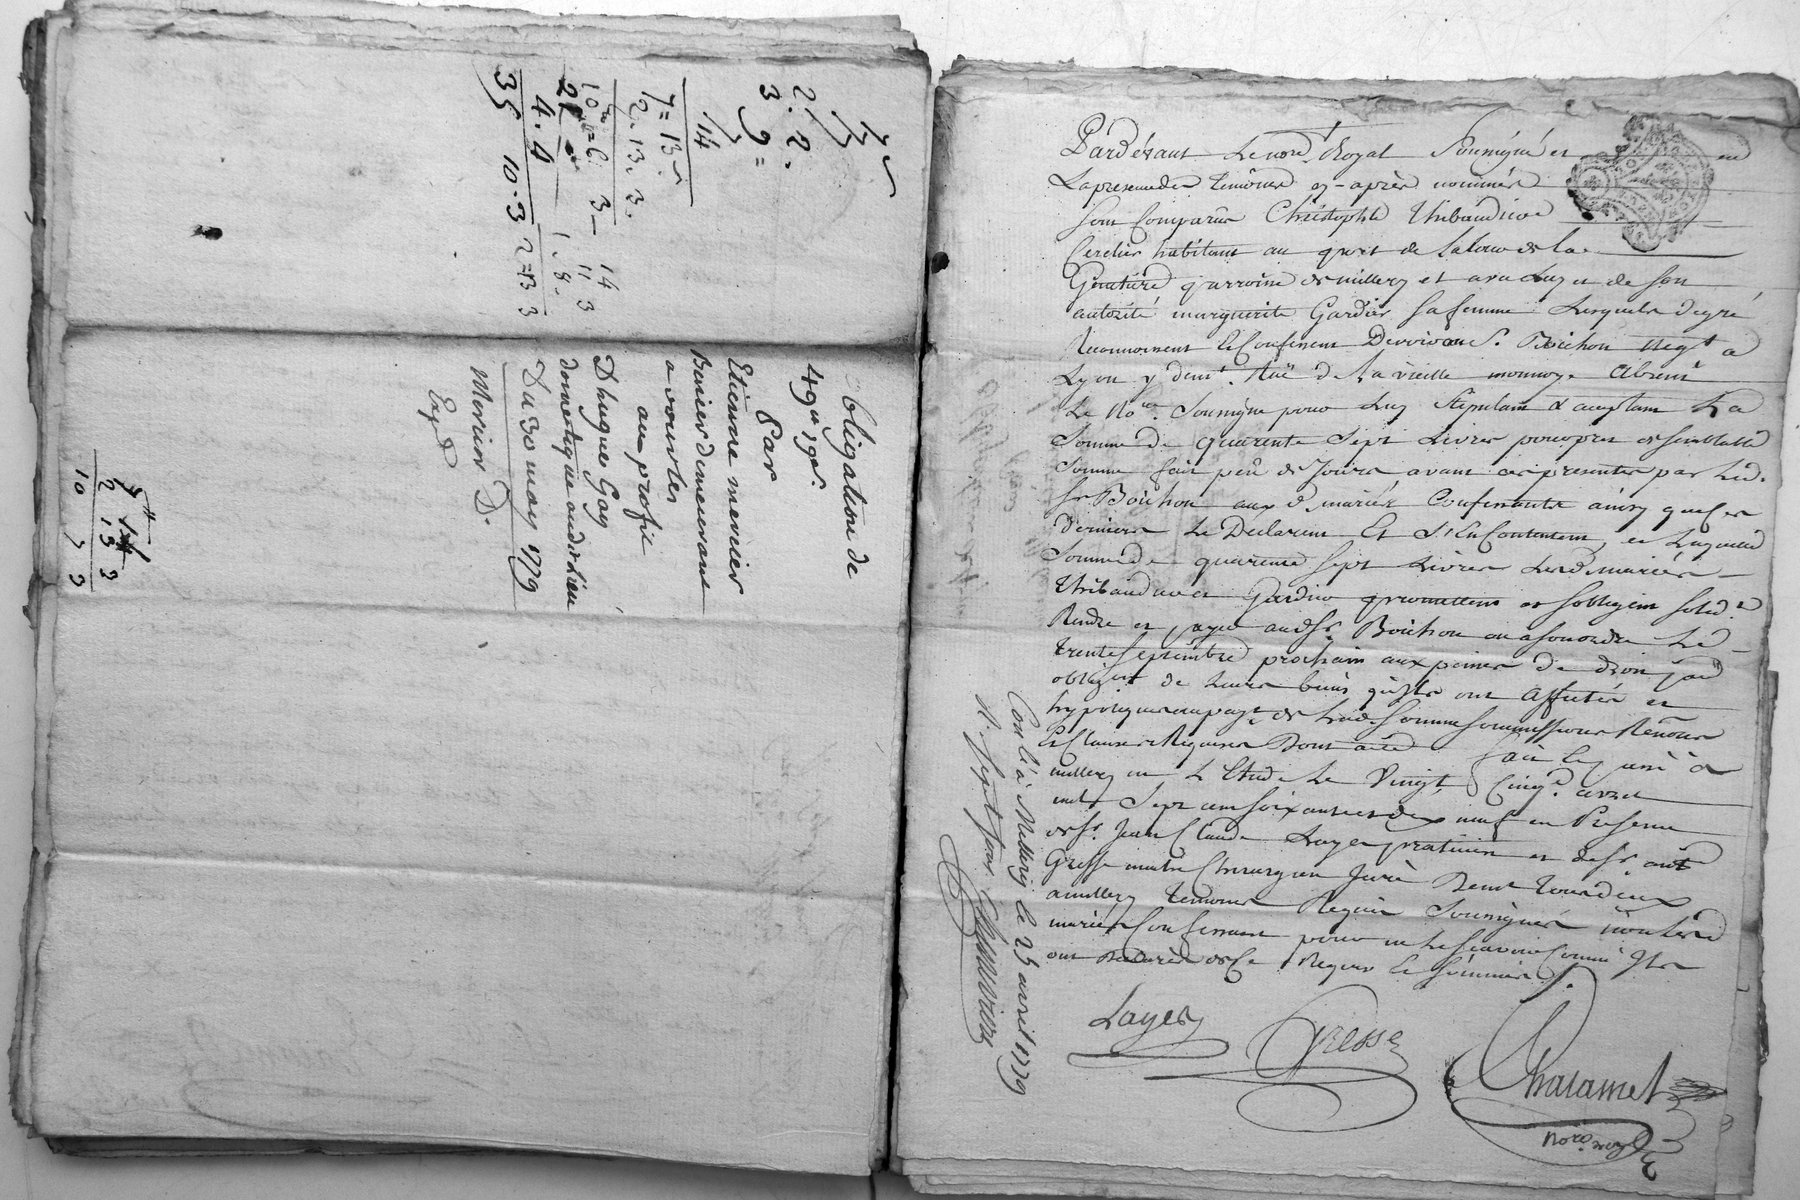 Obligation de
49# 19s
Par
Etienne mercier
Bercier demeurant
a vourles
au profit
D'hugue Gay
domestique audit Lieu
Du 30 may 1779
Mercier D.
Exp d
2. 2.
3 9 =
14
7 = 13
12. 13. 3.
4. 4
35 10. 3 2 = 13 3
2 13 3
10 3 3
Pardevant Le no.re Royal Soussigné et en
La presence des temoins cy-après nommés
sont Comparus Christophle Thibaudier
Cerclier habitant au
parroisse de millery et avec luy et de son
autorité marguerite Gardier sa femme Lesquels de gré
Reconnoissent et Confessent Devoir au S.r Boichon neg.t a
Lyon y dem.t Ruë de La vieille monnoye absent
Le No.re Soussigné pour Luy Stipulant & acceptant La
Somme de quarente Sept Livres pour pret de semblable
Somme fait peu de Jours avant ces presentes par Led.
Sr Boichon aux d. mariés Confessants ainsy que ces
derniers Le Declarent Et S'En Contentent, et Laquelle
Somme de quarente Sept Livres Lesd. mariés
Thibaudier et Gardier promettent et s'obligent solid.t
Rendre et payer aud. Sr. Boichon ou a son ordre Le
trente Septembre prochain aux peines de droit
oblig.t de Leurs biens qu'Ils ont affectés et
hypotequés au pay.t de Lad. Somme Soumissions Renon.s
Et Clauses Requises Dont acte fait Et passé à
millery en L'Etude Le Vingt Cinq.e avril
mil Sept cent soixante et dix neuf en Presence
de Sr. Jean Claude Layer praticien et de Sr. ant.
Gresse maitre Chirurgien Juré Dem.t tous deux
a millery temoins Requis Soussignés non Lesd.
mariés Confessants pour ne Le scavoir Comme Ils
ont declaré de Ce Requis Et Sommés.
Layer
Gresse
Chalamet
no.re royal
Con.lé à Millery le 25 avril 1779
R. sept sous